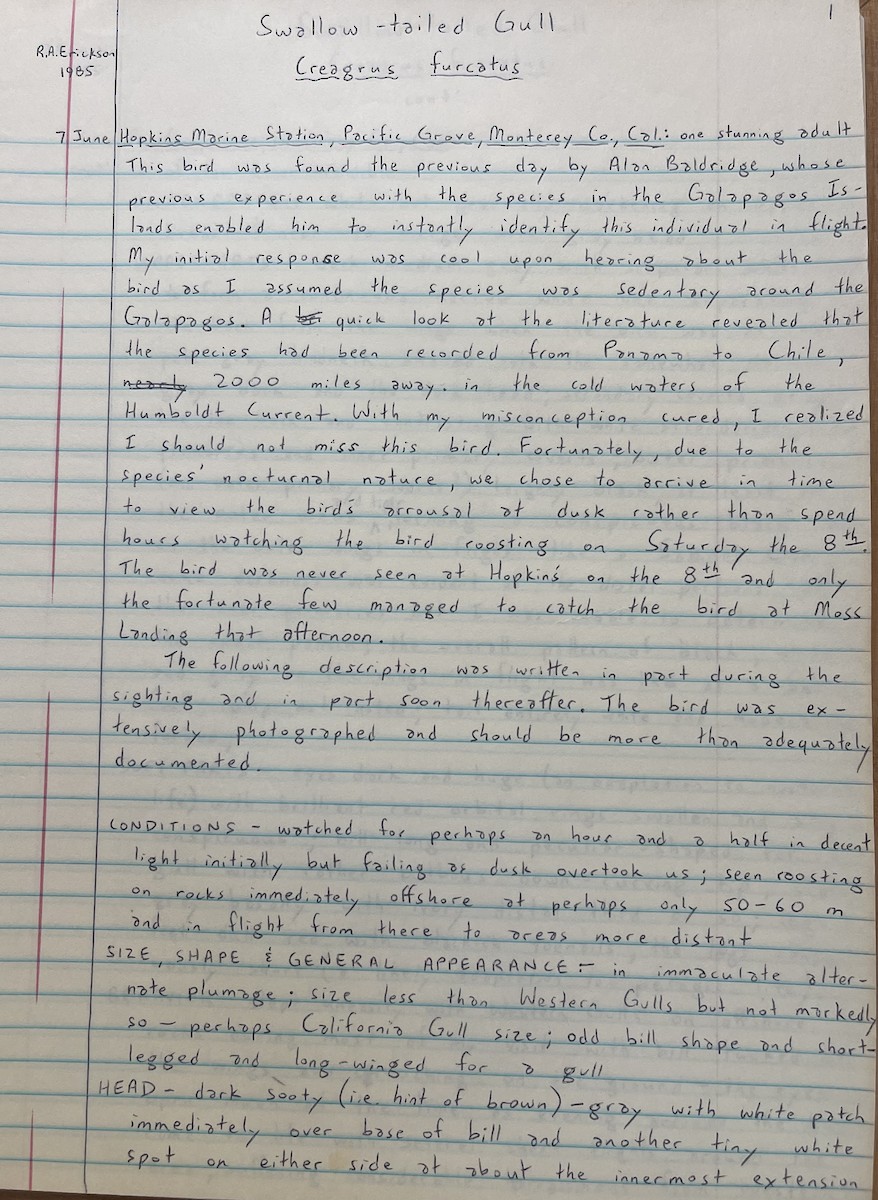 1
Swallow-tailed Gull
R.A.Erickson
1985
Creagrus furcatus
7 June Hopkins Marine Station, Pacific Grove, Monterey Co., Cal.: one stunning adult
This bird was found the previous day by Alan Baldridge, whose
previous experience with the species in the Galapagos Is-
lands enabled him to instantly identify this individual in flight.
My initial response was cool upon hearing about the
bird as I assumed the species was sedentary around the
Galapagos. A quick look at the literature revealed that
the species had been recorded from Panama to Chile,
nearly 2000 miles away. in the cold waters of the
Humboldt Current. With my misconception cured, I realized
I should not miss this bird. Fortunately, due to the
species' nocturnal nature, we chose to arrive in time
to view the bird's arrousal at dusk rather than spend
hours watching the bird roosting on Saturday the 8th.
The bird was never seen at Hopkin's on the 8th and only
the fortunate few managed to catch the bird at Moss
Landing that afternoon.
The following description was written in part during the
sighting and in part soon thereafter. The bird was ex-
tensively photographed and should be more than adequately
documented.
CONDITIONS - watched for perhaps an hour and a half in decent
light initially but failing as dusk overtook us; seen roosting
on rocks immediately offshore at perhaps only 50-60 m
and in flight from there to areas more distant
SIZE, SHAPE & GENERAL APPEARANCE - in immaculate alter-
nate plumage; size less than Western Gulls but not markedly
so - perhaps California Gull size; odd bill shape and short-
legged and long-winged for a gull
HEAD - dark sooty (i.e. hint of brown)-gray with white patch
immediately over base of bill and another tiny white
spot on either side at about the innermost extension